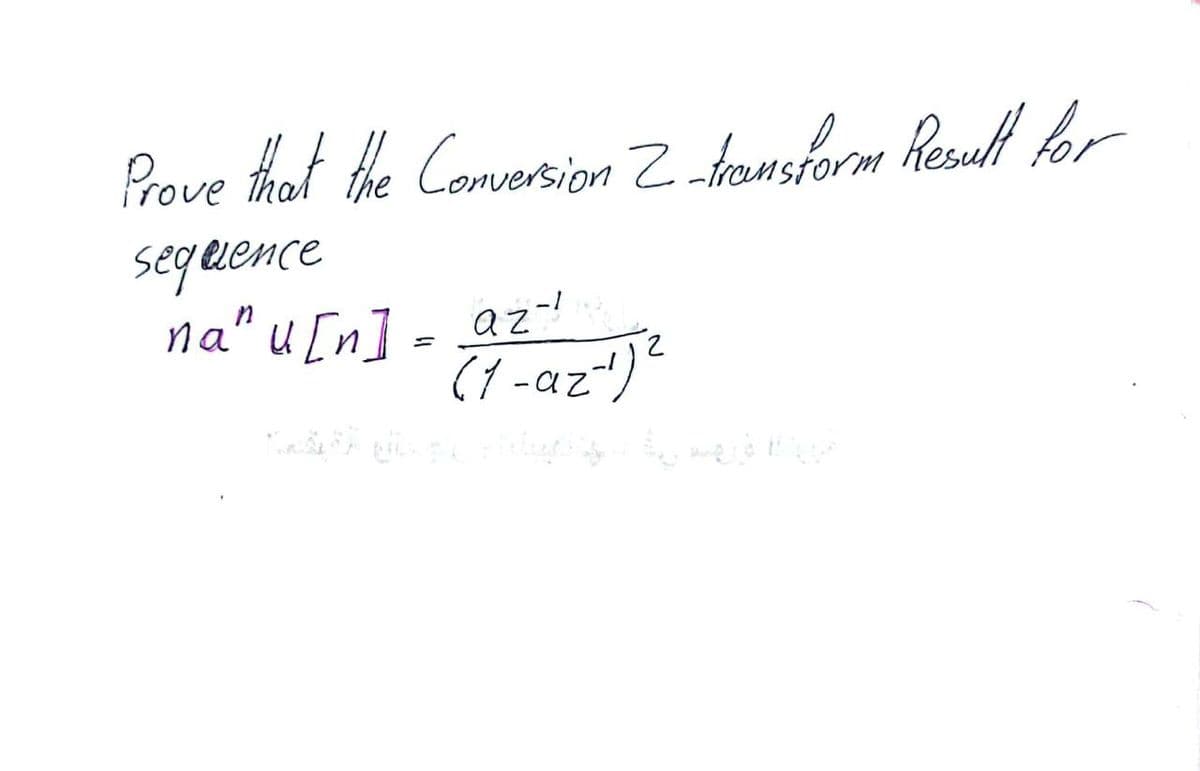 Prove that the Conversion Z-transform Result for
sequence
naⁿ u[n] = az⁻¹ / (1-az⁻¹)²